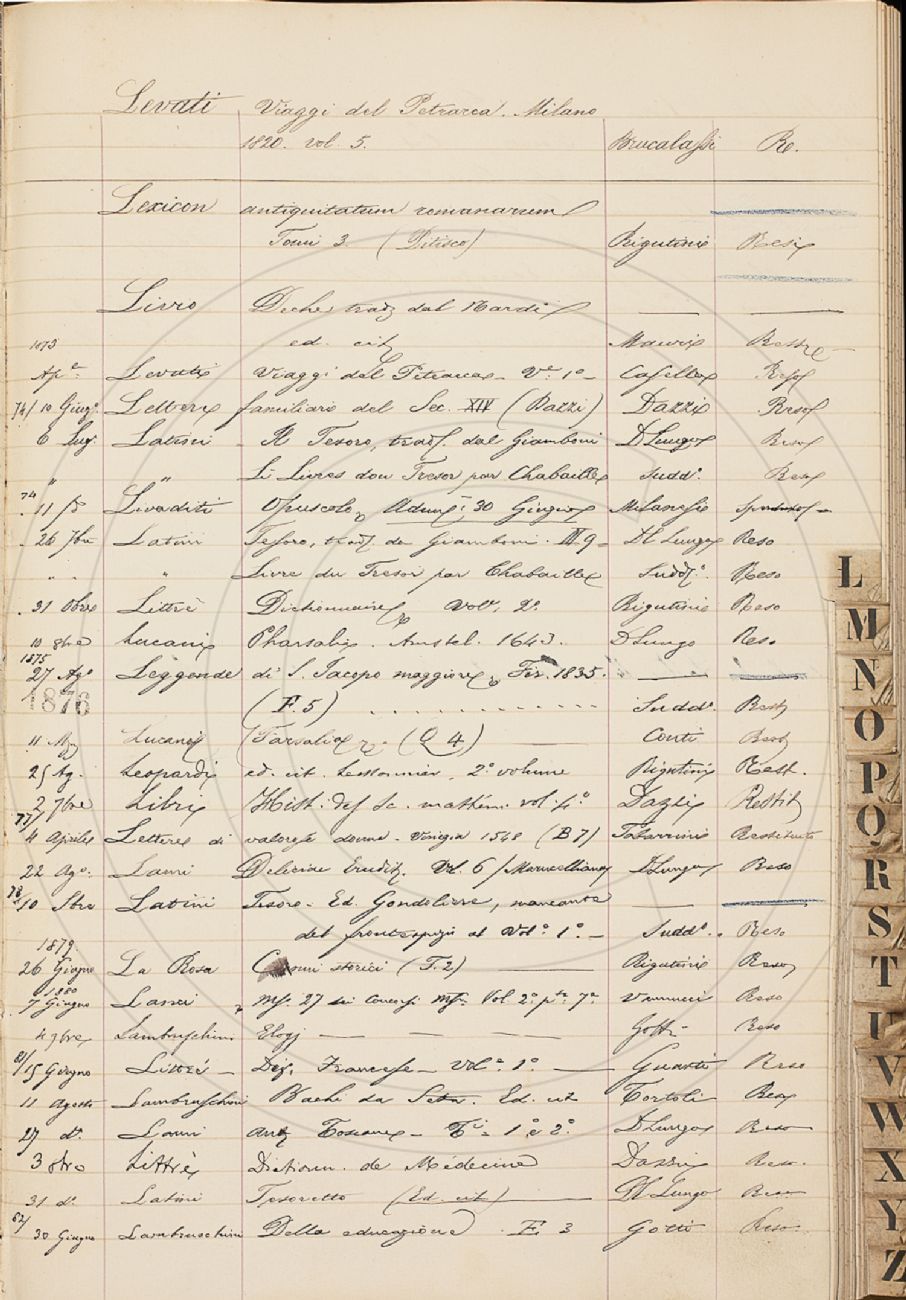 Levati Viaggi del Petrarca. Milano
1820. vol. 5. Brucalassi Re.
Lexicon antiquitatum romanarum
Tomi 3 (Pitisco) Rigutini Resi
Livio Deche trad dal Nardi
1873 ed. cit Mauri
Ape. Levati Viaggi del Petrarca Ve. 1o Casella Reso
74/ 10 Giugo Lettere familiari del Sec. XIV (Dazzi) Dazzi Reso
6 Lugo Latini Il Tesoro, trad. dal Giamboni DLungo Reso
" " Li Livres dou Tresor par Chabaille Suddo. Reso
74
11 Livaditi Opuscolo Adune 30 Giugno Milanesi
26 7bre Latini Tesoro, trad. da Giamboni. III 9 Del Lungo Reso
" " " Livre du Tresor par Chabaille Suddo. Reso
31 Obre Littrè Dictionnaire Vol. 2o. Rigutini Reso
10 8bre Lucani Pharsalia. Amstel. 1643. DLungo Reso
1875
27 Ago Leggende di S. Jacopo maggiore, Fir. 1835. —
1876 (F. 5) . . . . . . . . . . . Suddo. Rest
11 Mg Lucani (Farsalia (Q 4) Conti Rest
25 Ag. Leopardi ed. cit. Lessonnier, 2o volume Rigutini Rest.
2 7bre Libri Hist. des Sc. mathém. vol. 4o Dazzi Restit
77/
4 Aprile Lettere di valorose donne - Venezia 1548 (B 7) Restituito
22 Ago. Lami Deliciae Erudit. Vol. 6 / DLungo Reso
78/
10 Latini Tesoro - Ed. Gondoliere, mancante —
del frontespizio al Volo. 1o. — Suddo. Reso
1879.
26 Giugno La Rosa storici (F. 2) Rigutini Reso
1880
7 Giugno Lanci Ms. 27 Vol. 2o pte 7a Vannucci Reso
4 7bre Lambruschini Elogj — — — Gotti Reso
81/
15 Giugno Littré — Diz. Francese — Volo. 1o. — Guasti Reso
11 Agosto Lambruschini Bachi da Seta. Ed. cit Tortoli Reso
27 do. Lami Ant Toscane — 1o e 2o. DLungo Reso
3 8bre Littrè Diction. de Médecine Dazzi Reso.
31 do. Latini Tesoretto (Ed. cit) — Del Lungo Reso
82/
30 Giugno Lambruschini Della educazione . F. 3 Gotti Reso
L
M
N
O
P
Q
R
S
T
U
V
W
X
Y
Z